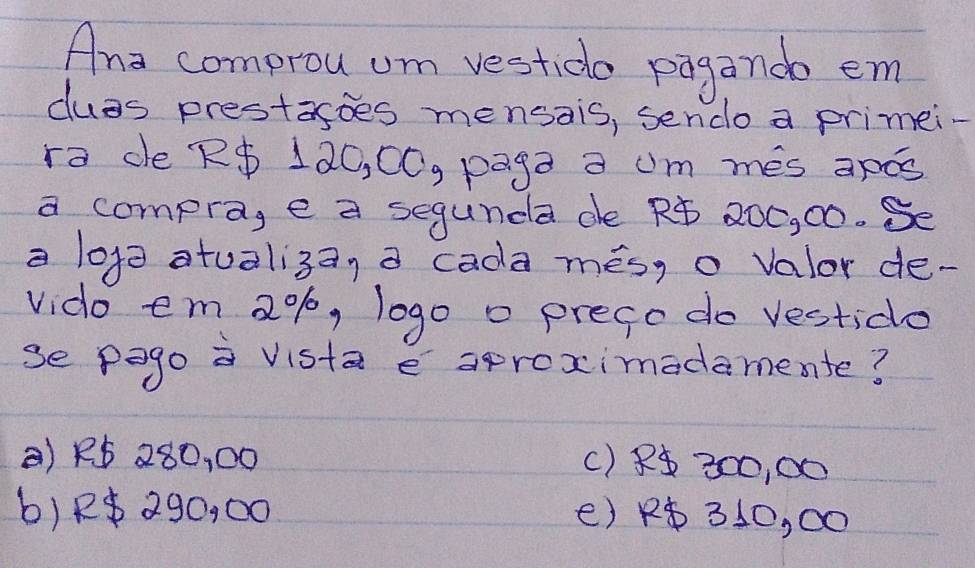 Ana comprou um vestido pagando em
duas prestações mensais, sendo a primei-
ra de R$ 120,00, paga a um mês após
a compra, e a segunda de R$ 200,00. Se
a loja atualiza, a cada mês, o valor de-
vido em 2%, logo o preço do vestido
se pago à vista é aproximadamente?
a) R$ 280,00
c) R$ 300,00
b) R$ 290,00
e) R$ 310,00